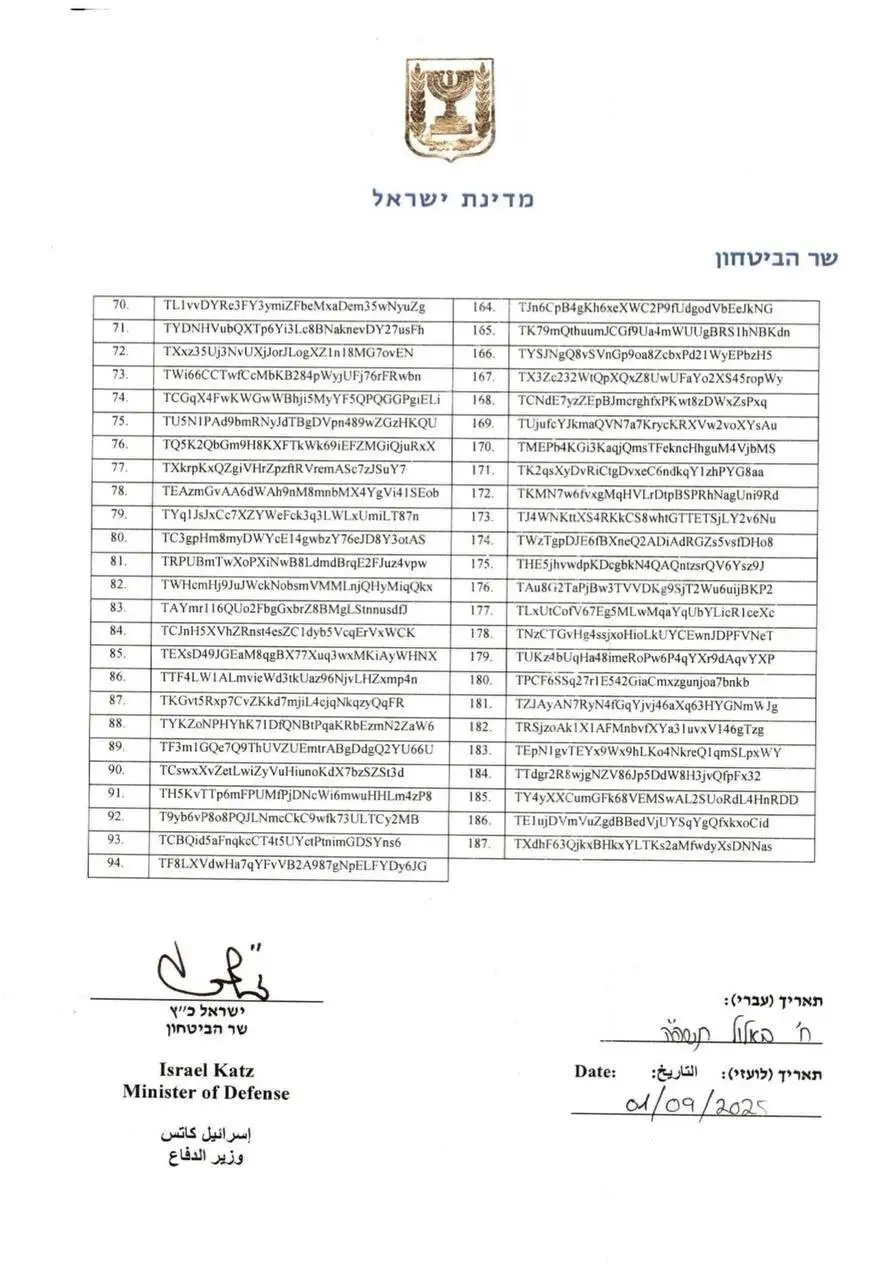 מדינת ישראל
שר הביטחון
70. TL1vvDYRe3FY3ymiZFbeMxaDem35wNyuZg 164. TJn6CpB4gKh6xeXWC2P9fUdgodVbEeJkNG
71. TYDNHVubQXTp6Yi3Lc8BNaknevDY27usFh 165. TK79mQthuumJCGf9Ua4mWUUgBRS1hNBKdn
72. TXxz35Uj3NvUXjJorJLogXZ1n18MG7ovEN 166. TYSJNgQ8vSVnGp9oa8ZcbxPd21WyEPbzH5
73. TWi66CCTwfCcMbKB284pWyjUFj76rFRwbn 167. TX3Zc232WtQpXQxZ8UwUFaYo2XS45ropWy
74. TCGqX4FwKWGwWBhji5MyYF5QPQGGPgiELi 168. TCNdE7yzZEpBJmcrghfxPKwt8zDWxZsPxq
75. TU5N1PAd9bmRNyJdTBgDVpn489wZGzHKQU 169. TUjufcYJkmaQVN7a7KrycKRXVw2voXYsAu
76. TQ5K2QbGm9H8KXFTkWk69iEFZMGiQjuRxX 170. TMEPb4KGi3KaqjQmsTFekncHhguM4VjbMS
77. TXkrpKxQZgiVHrZpzftRVremASc7zJSuY7 171. TK2qsXyDvRiCtgDvxeC6ndkqY1zhPYG8aa
78. TEAzmGvAA6dWAh9nM8mnbMX4YgVi41SEob 172. TKMN7w6fvxgMqHVLrDtpBSPRhNagUni9Rd
79. TYq1JsJxCc7XZYWeFck3q3LWLxUmiLT87n 173. TJ4WNKttXS4RKkCS8whtGTTETSjLY2v6Nu
80. TC3gpHm8myDWYcE14gwbzY76eJD8Y3otAS 174. TWzTgpDJE6fBXneQ2ADiAdRGZs5vsfDHo8
81. TRPUBmTwXoPXiNwB8LdmdBrqE2FJuz4vpw 175. THE5jhvwdpKDcgbkN4QAQntzsrQV6Ysz9J
82. TWHcmHj9JuJWckNobsmVMMLnjQHyMiqQkx 176. TAu8G2TaPjBw3TVVDKg9SjT2Wu6uijBKP2
83. TAYmr116QUo2FbgGxbrZ8BMgLStnnusdfJ 177. TLxUtCofV67Eg5MLwMqaYqUbYLicR1ceXc
84. TCJnH5XVhZRnst4esZC1dyb5VcqErVxWCK 178. TNzCTGvHg4ssjxoHioLkUYCEwnJDPFVNeT
85. TEXsD49JGEaM8qgBX77Xuq3wxMKiAyWHNX 179. TUKz4bUqHa48imeRoPw6P4qYXr9dAqvYXP
86. TTF4LW1ALmvieWd3tkUaz96NjvLHZxmp4n 180. TPCF6SSq27r1E542GiaCmxzgunjoa7bnkb
87. TKGvt5Rxp7CvZKkd7mjiL4cjqNkqzyQqFR 181. TZJAyAN7RyN4fGqYjvj46aXq63HYGNmWJg
88. TYKZoNPHYhK71DfQNBtPqaKRbEzmN2ZaW6 182. TRSjzoAk1X1AFMnbvfXYa31uvxV146gTzg
89. TF3m1GQe7Q9ThUVZUEmtrABgDdgQ2YU66U 183. TEpN1gvTEYx9Wx9hLKo4NkreQ1qmSLpxWY
90. TCswxXvZetLwiZyVuHiunoKdX7bzSZSt3d 184. TTdgr2R8wjgNZV86Jp5DdW8H3jvQfpFx32
91. TH5KvTTp6mFPUMfPjDNcWi6mwuHHLm4zP8 185. TY4yXXCumGFk68VEMSwAL2SUoRdL4HnRDD
92. T9yb6vP8o8PQJLNmcCkC9wfk73ULTCy2MB 186. TE1ujDVmVuZgdBBedVjUYSqYgQfxkxoCid
93. TCBQid5aFnqkcCT4t5UYctPtnimGDSYns6 187. TXdhF63QjkxBHkxYLTKs2aMfwdyXsDNNas
94. TF8LXVdwHa7qYFvVB2A987gNpELFYDy6JG
ישראל כ״ץ
שר הביטחון
Israel Katz
Minister of Defense
إسرائيل كاتس
وزير الدفاع
תאריך (עברי):
ח' באלול תשפ"ה
תאריך (לועזי): التاريخ: Date:
01/09/2025